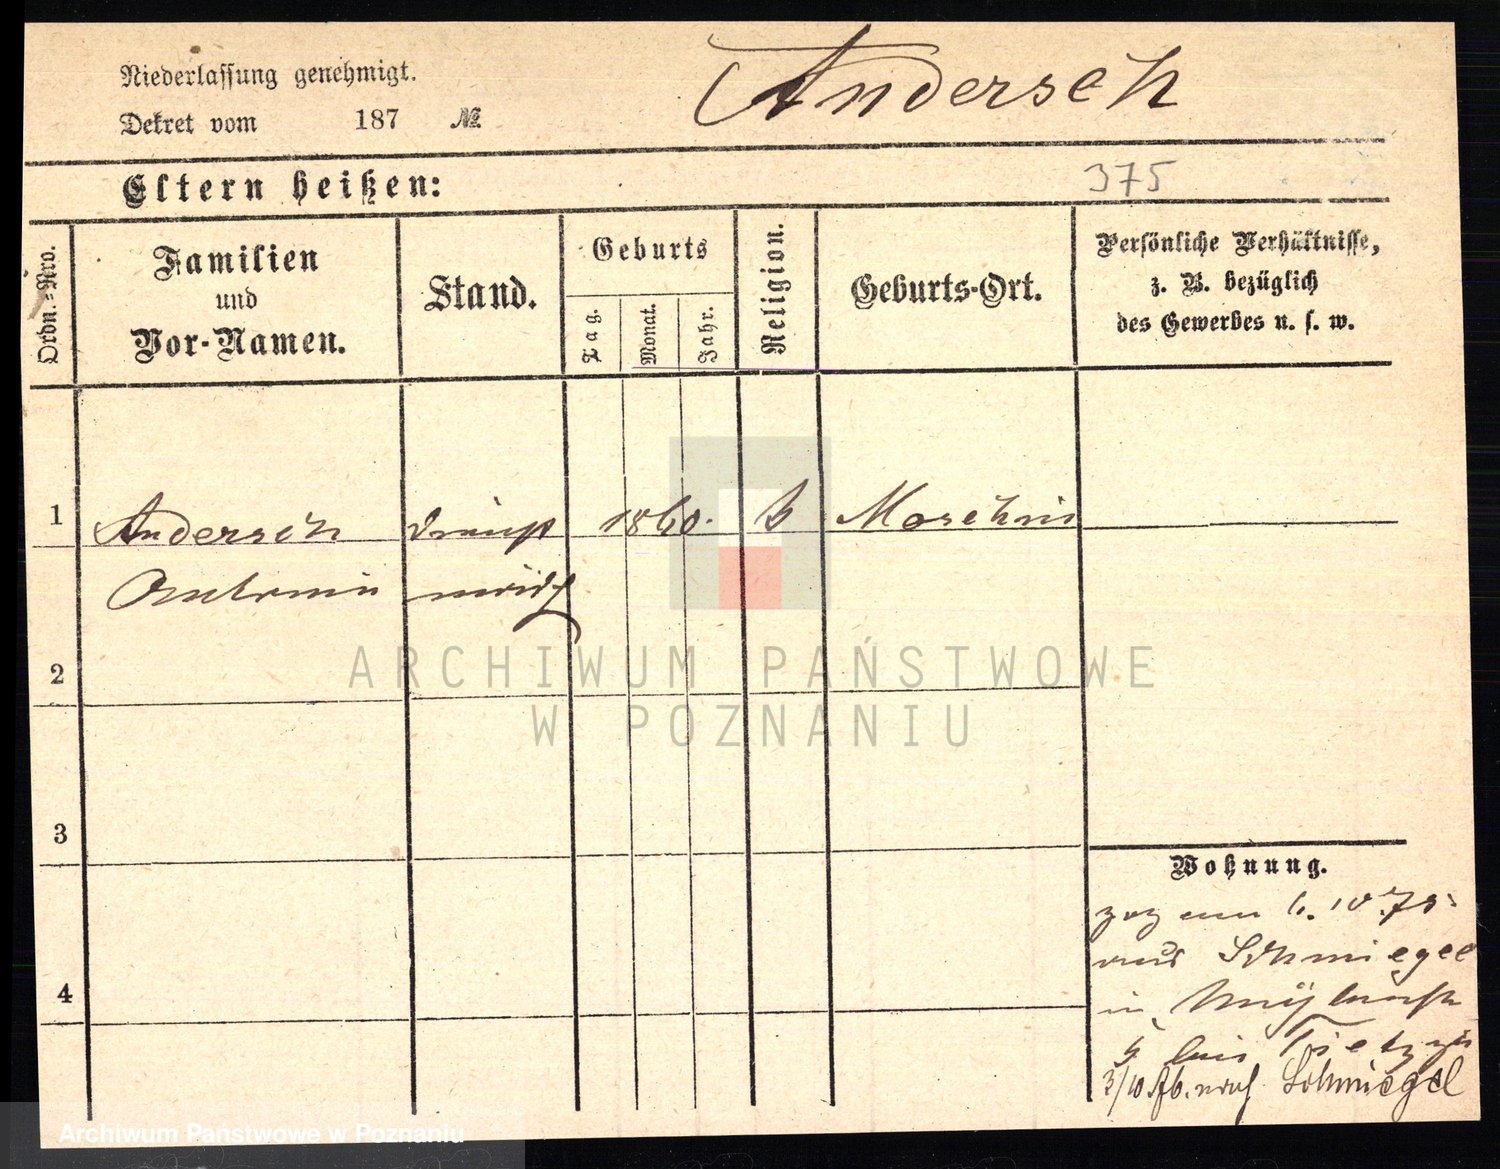 Niederlassung genehmigt.
Dekret vom 187 №
Andersch
Eltern heißen:
375
Ordn.=Nro.
Familien
und
Vor-Namen.
Stand.
Geburts
Tag.
Monat.
Jahr.
Religion.
Geburts-Ort.
Persönliche Verhältnisse,
z. B. bezüglich
des Gewerbes u. s. w.
1
Andersch
Dienst
1860.
Moschin
Antonie
2
3
4
Wohnung.
zog am 6. 10 75
aus Schmiegel
in
5 bei Tietz
3/10 nach Schmiegel
ARCHIWUM PAŃSTWOWE
W POZNANIU
Archiwum Państwowe w Poznaniu